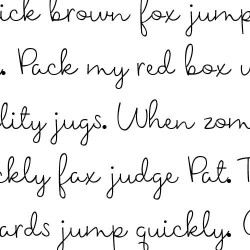 ick brown fox jump
. Pack my red box w
lity jugs. When zom
ckly fax judge Pat. T
ards jump quickly.